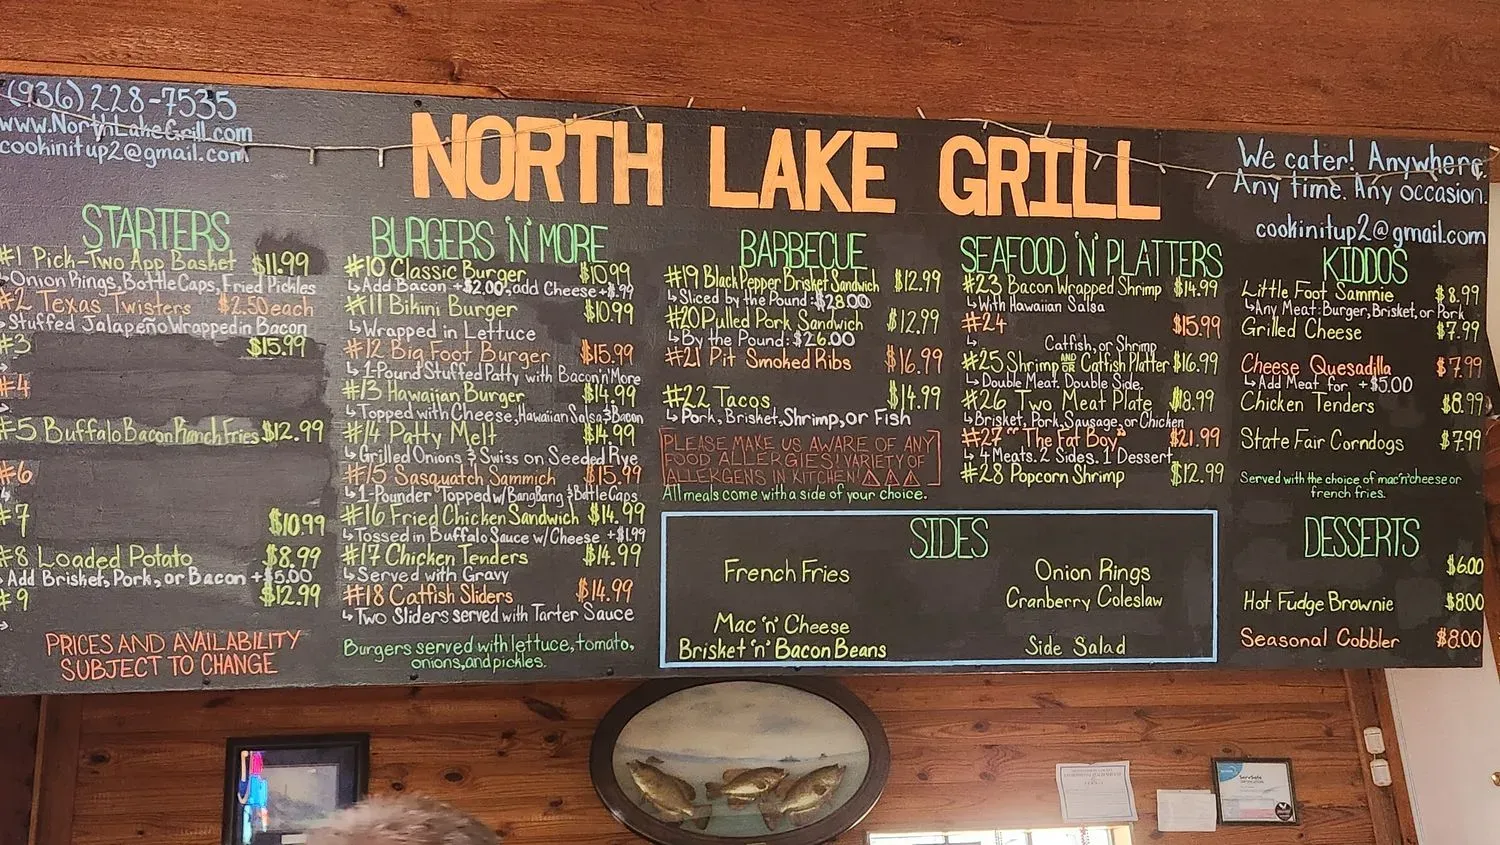 (936) 228-7535
www.NorthLakeGrill.com
cookinitup2@gmail.com
NORTH LAKE GRILL
We cater! Anywhere.
Any time. Any occasion.
cookinitup2@gmail.com
STARTERS
#1 Pick-Two App Basket $11.99
↳Onion Rings, Bottle Caps, Fried Pickles
#2 Texas Twisters $2.50 each
↳Stuffed Jalapeño Wrapped in Bacon
#3 $15.99
#4
#5 Buffalo Bacon Ranch Fries $12.99
#6
#7 $10.99
#8 Loaded Potato $8.99
↳Add Brisket, Pork, or Bacon +$5.00
#9 $12.99
PRICES AND AVAILABILITY
SUBJECT TO CHANGE
BURGERS 'N' MORE
#10 Classic Burger $10.99
↳Add Bacon +$2.00, add Cheese +$.99
#11 Bikini Burger $10.99
↳Wrapped in Lettuce
#12 Big Foot Burger $15.99
↳1-Pound Stuffed Patty with Bacon 'n' More
#13 Hawaiian Burger $14.99
↳Topped with Cheese, Hawaiian Salsa & Bacon
#14 Patty Melt $14.99
↳Grilled Onions & Swiss on Seeded Rye
#15 Sasquatch Sammich $15.99
↳1-Pounder Topped w/ Bang Bang & Bottle Caps
#16 Fried Chicken Sandwich $14.99
↳Tossed in Buffalo Sauce w/ Cheese +$1.99
#17 Chicken Tenders $14.99
↳Served with Gravy
#18 Catfish Sliders $14.99
↳Two Sliders served with Tarter Sauce
Burgers served with lettuce, tomato,
onions, and pickles.
BARBECUE
#19 Black Pepper Brisket Sandwich $12.99
↳Sliced by the Pound: $28.00
#20 Pulled Pork Sandwich $12.99
↳By the Pound: $26.00
#21 Pit Smoked Ribs $16.99
#22 Tacos $14.99
↳Pork, Brisket, Shrimp, or Fish
PLEASE MAKE US AWARE OF ANY
FOOD ALLERGIES! VARIETY OF
ALLERGENS IN KITCHEN!
All meals come with a side of your choice.
SEAFOOD 'N' PLATTERS
#23 Bacon Wrapped Shrimp $14.99
↳With Hawaiian Salsa
#24 $15.99
↳ Catfish, or Shrimp
#25 Shrimp AND OR Catfish Platter $16.99
↳Double Meat. Double Side.
#26 Two Meat Plate $18.99
↳Brisket, Pork, Sausage, or Chicken
#27 "The Fat Boy" $21.99
↳4 Meats. 2 Sides. 1 Dessert
#28 Popcorn Shrimp $12.99
SIDES
French Fries
Mac 'n' Cheese
Brisket 'n' Bacon Beans
Onion Rings
Cranberry Coleslaw
Side Salad
KIDDOS
Little Foot Sammie $8.99
↳Any Meat: Burger, Brisket, or Pork
Grilled Cheese $7.99
Cheese Quesadilla $7.99
↳Add Meat for +$5.00
Chicken Tenders $8.99
State Fair Corndogs $7.99
Served with the choice of mac'n'cheese or
french fries.
DESSERTS
$6.00
Hot Fudge Brownie $8.00
Seasonal Cobbler $8.00
ServSafe